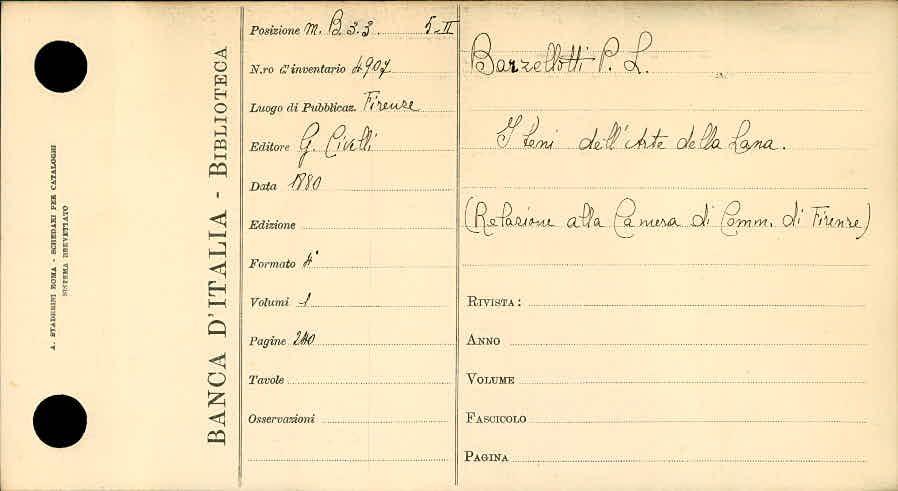 A. STADERINI ROMA - SCHEDARI PER CATALOGHI
SISTEMA BREVETTATO
BANCA D'ITALIA - BIBLIOTECA
Posizione M. B. 3. 3 5-II
N.ro d'inventario 4907
Luogo di Pubblicaz. Firenze
Editore G. Civelli
Data 1880
Edizione
Formato 4°
Volumi 1
Pagine 240
Tavole
Osservazioni
Barzellotti P. L.
I Beni dell'Arte della Lana.
(Relazione alla Camera di Comm. di Firenze)
RIVISTA:
ANNO
VOLUME
FASCICOLO
PAGINA